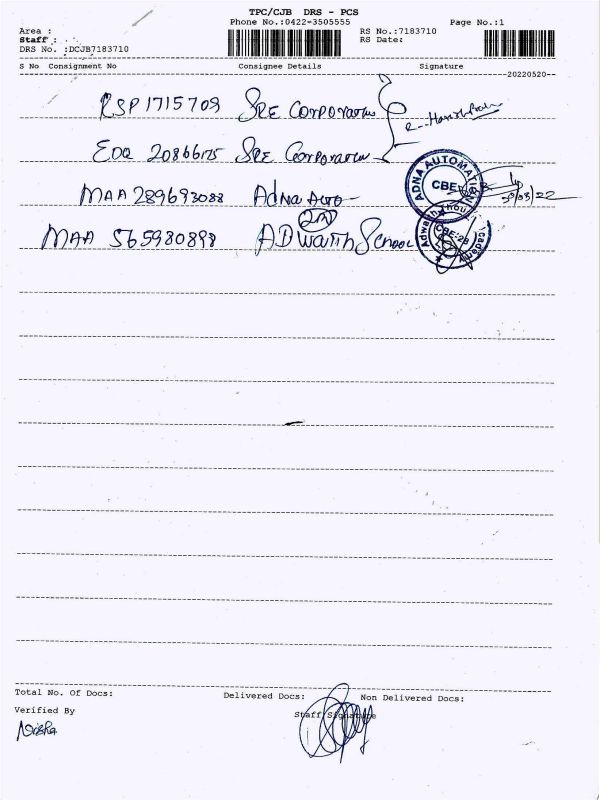 TPC/CJB DRS - PCS
Phone No.:0422-3505555
Page No.:1
Area :
Staff :
DRS No. :DCJB7183710
RS No.:7183710
RS Date:
S No Consignment No Consignee Details Signature
--20220520--
RSP 1715709 SRE Corporation
EDQ 20866175 SRE Corporation
MAA 289693088 Adna Auto
ADNA AUTOMATION
CBE
MAA 565980898 ADwaith School
Total No. Of Docs:
Delivered Docs:
Non Delivered Docs:
Verified By
Staff Signature
Nisha